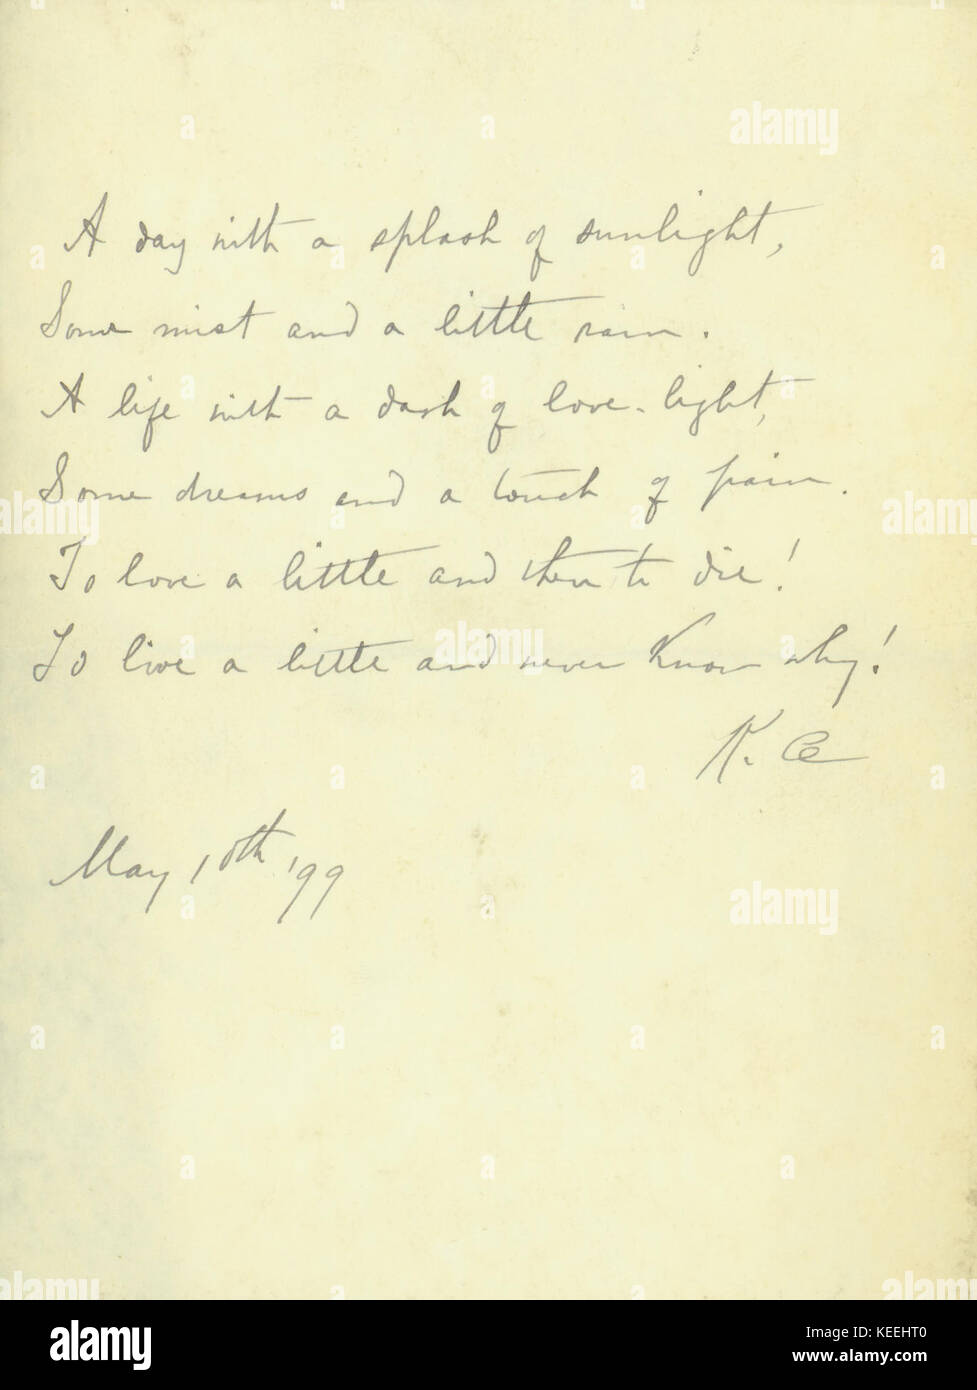 A day with a splash of sunlight,
Some mist and a little rain.
A life with a dash of love-light,
Some dreams and a touch of pain.
To love a little and then to die!
To live a little and never know why!
K. C
May 10th '99
alamy
Image ID: KEEHT0
www.alamy.com